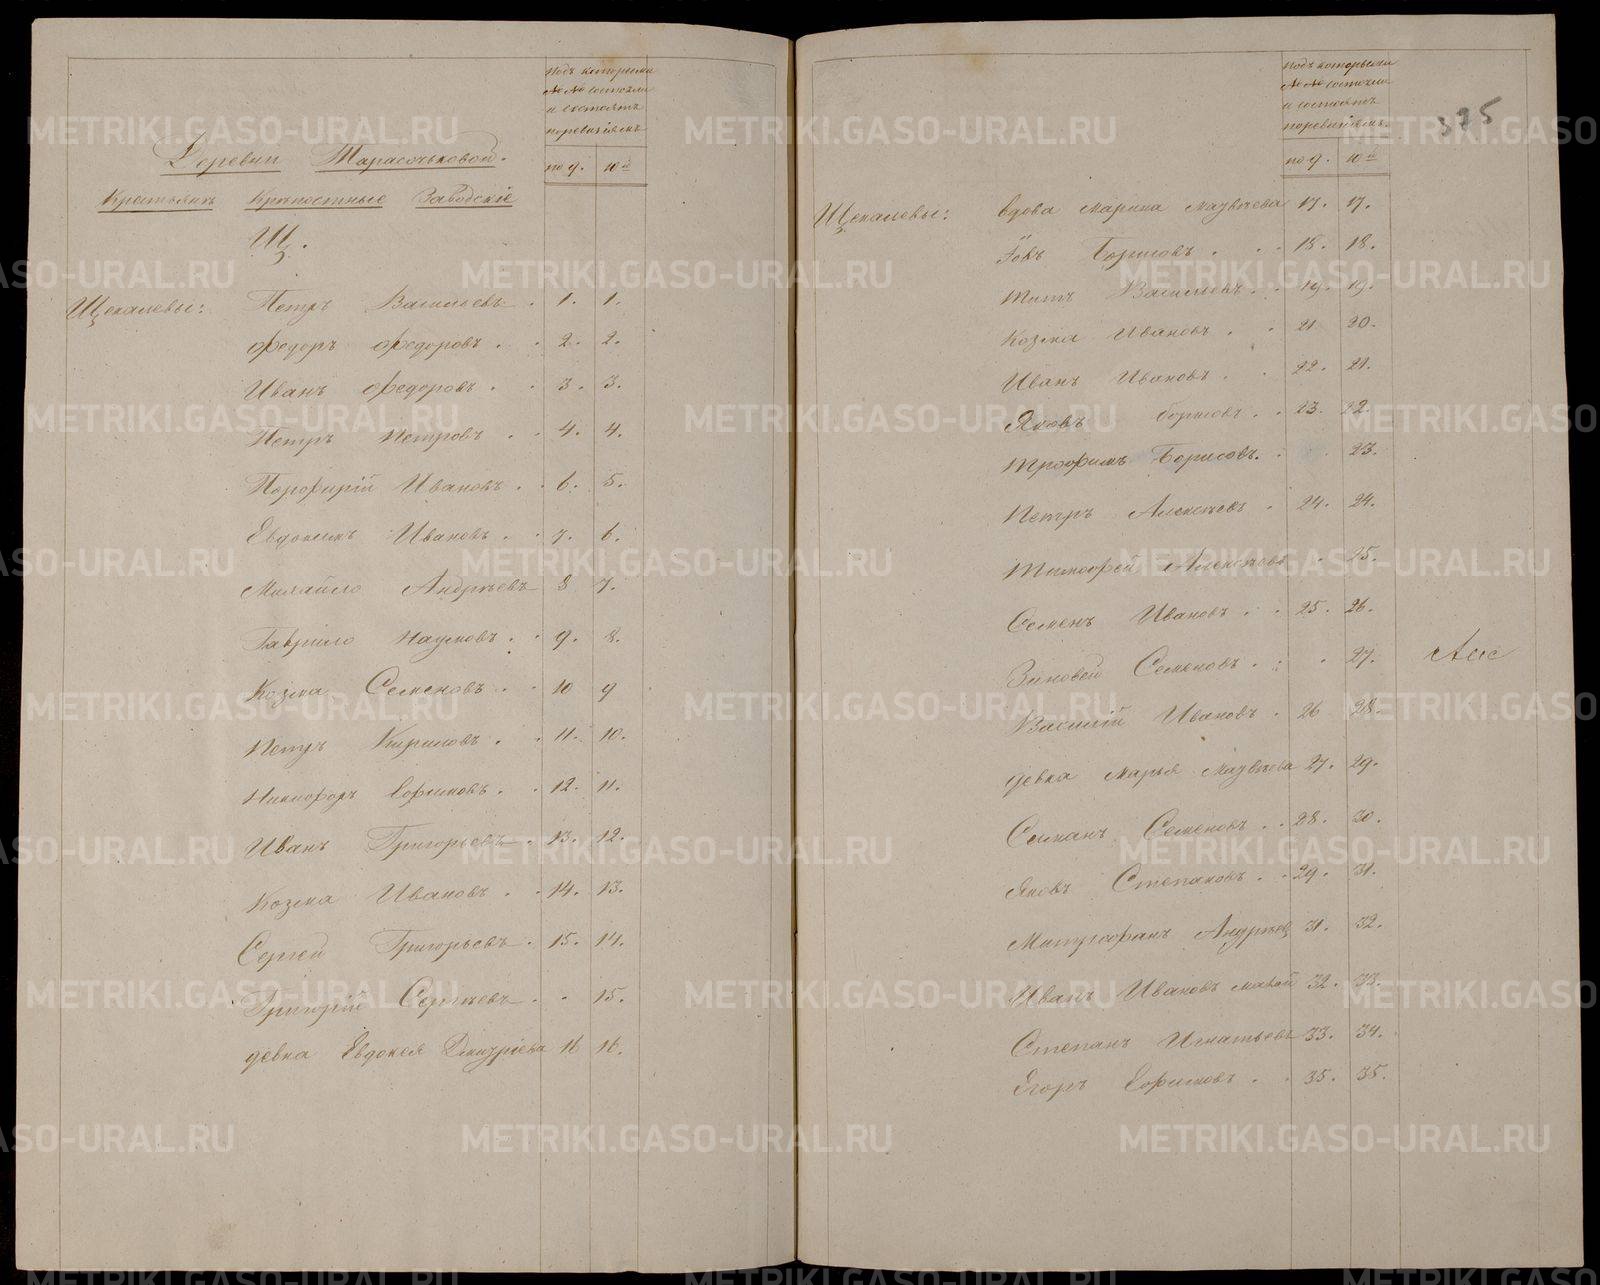 Подъ которыми
№№ состояли
и состоятъ
по ревизіямъ
по 9. 10й
Деревни Тарасочьковой.
Крестьянъ Крѣпостные Заводскіе
Щ.
Щекалевы: Петръ Васильевъ . 1. 1.
Федоръ Федоровъ . . 2. 2.
Иванъ Федоровъ . . 3. 3.
Петръ Петровъ . . 4. 4.
Порфирій Ивановъ . . 6. 5.
Евдокимъ Ивановъ . . 7. 6.
Михайло Андрѣевъ 8 7.
Гаврило Наумовъ . . 9. 8.
Козма Семеновъ . . 10 9
Петръ Кириловъ . . 11. 10.
Никифоръ Ефимовъ . . 12. 11.
Иванъ Григорьевъ . 13. 12.
Козма Ивановъ . . 14. 13.
Сергей Григорьевъ . 15. 14.
Григорій Сергѣевъ . . 15.
девка Евдокея Дмитріева 16 16.
Подъ которыми
№№ состояли
и состоятъ
по ревизіямъ.
по 9. 10й
375
Щекалевы: вдова Марина Матвѣева 17. 17.
Іовъ Борисовъ . . . 18. 18.
Титъ Васильевъ . . 19. 19.
Козма Ивановъ . . 21 20.
Иванъ Ивановъ . . 22. 21.
Яковъ Борисовъ . . 23. 22.
Трофимъ Борисовъ. . . 23.
Петръ Алексѣевъ . 24. 24.
Тимофей Алексѣевъ . 25.
Семенъ Ивановъ . . 25. 26.
Зиновей Семеновъ . : . 27.
Василій Ивановъ . 26 28.
девка Марья Матвѣева 27. 29.
Симанъ Семеновъ . . 28. 30.
Яковъ Степановъ . . 29. 31.
Митрофанъ Андрѣев 31. 32.
Иванъ Ивановъ малой 32. 33.
Степанъ Игнатьевъ 33. 34.
Егоръ Ефимовъ . . 35. 35.
METRIKI.GASO-URAL.RU